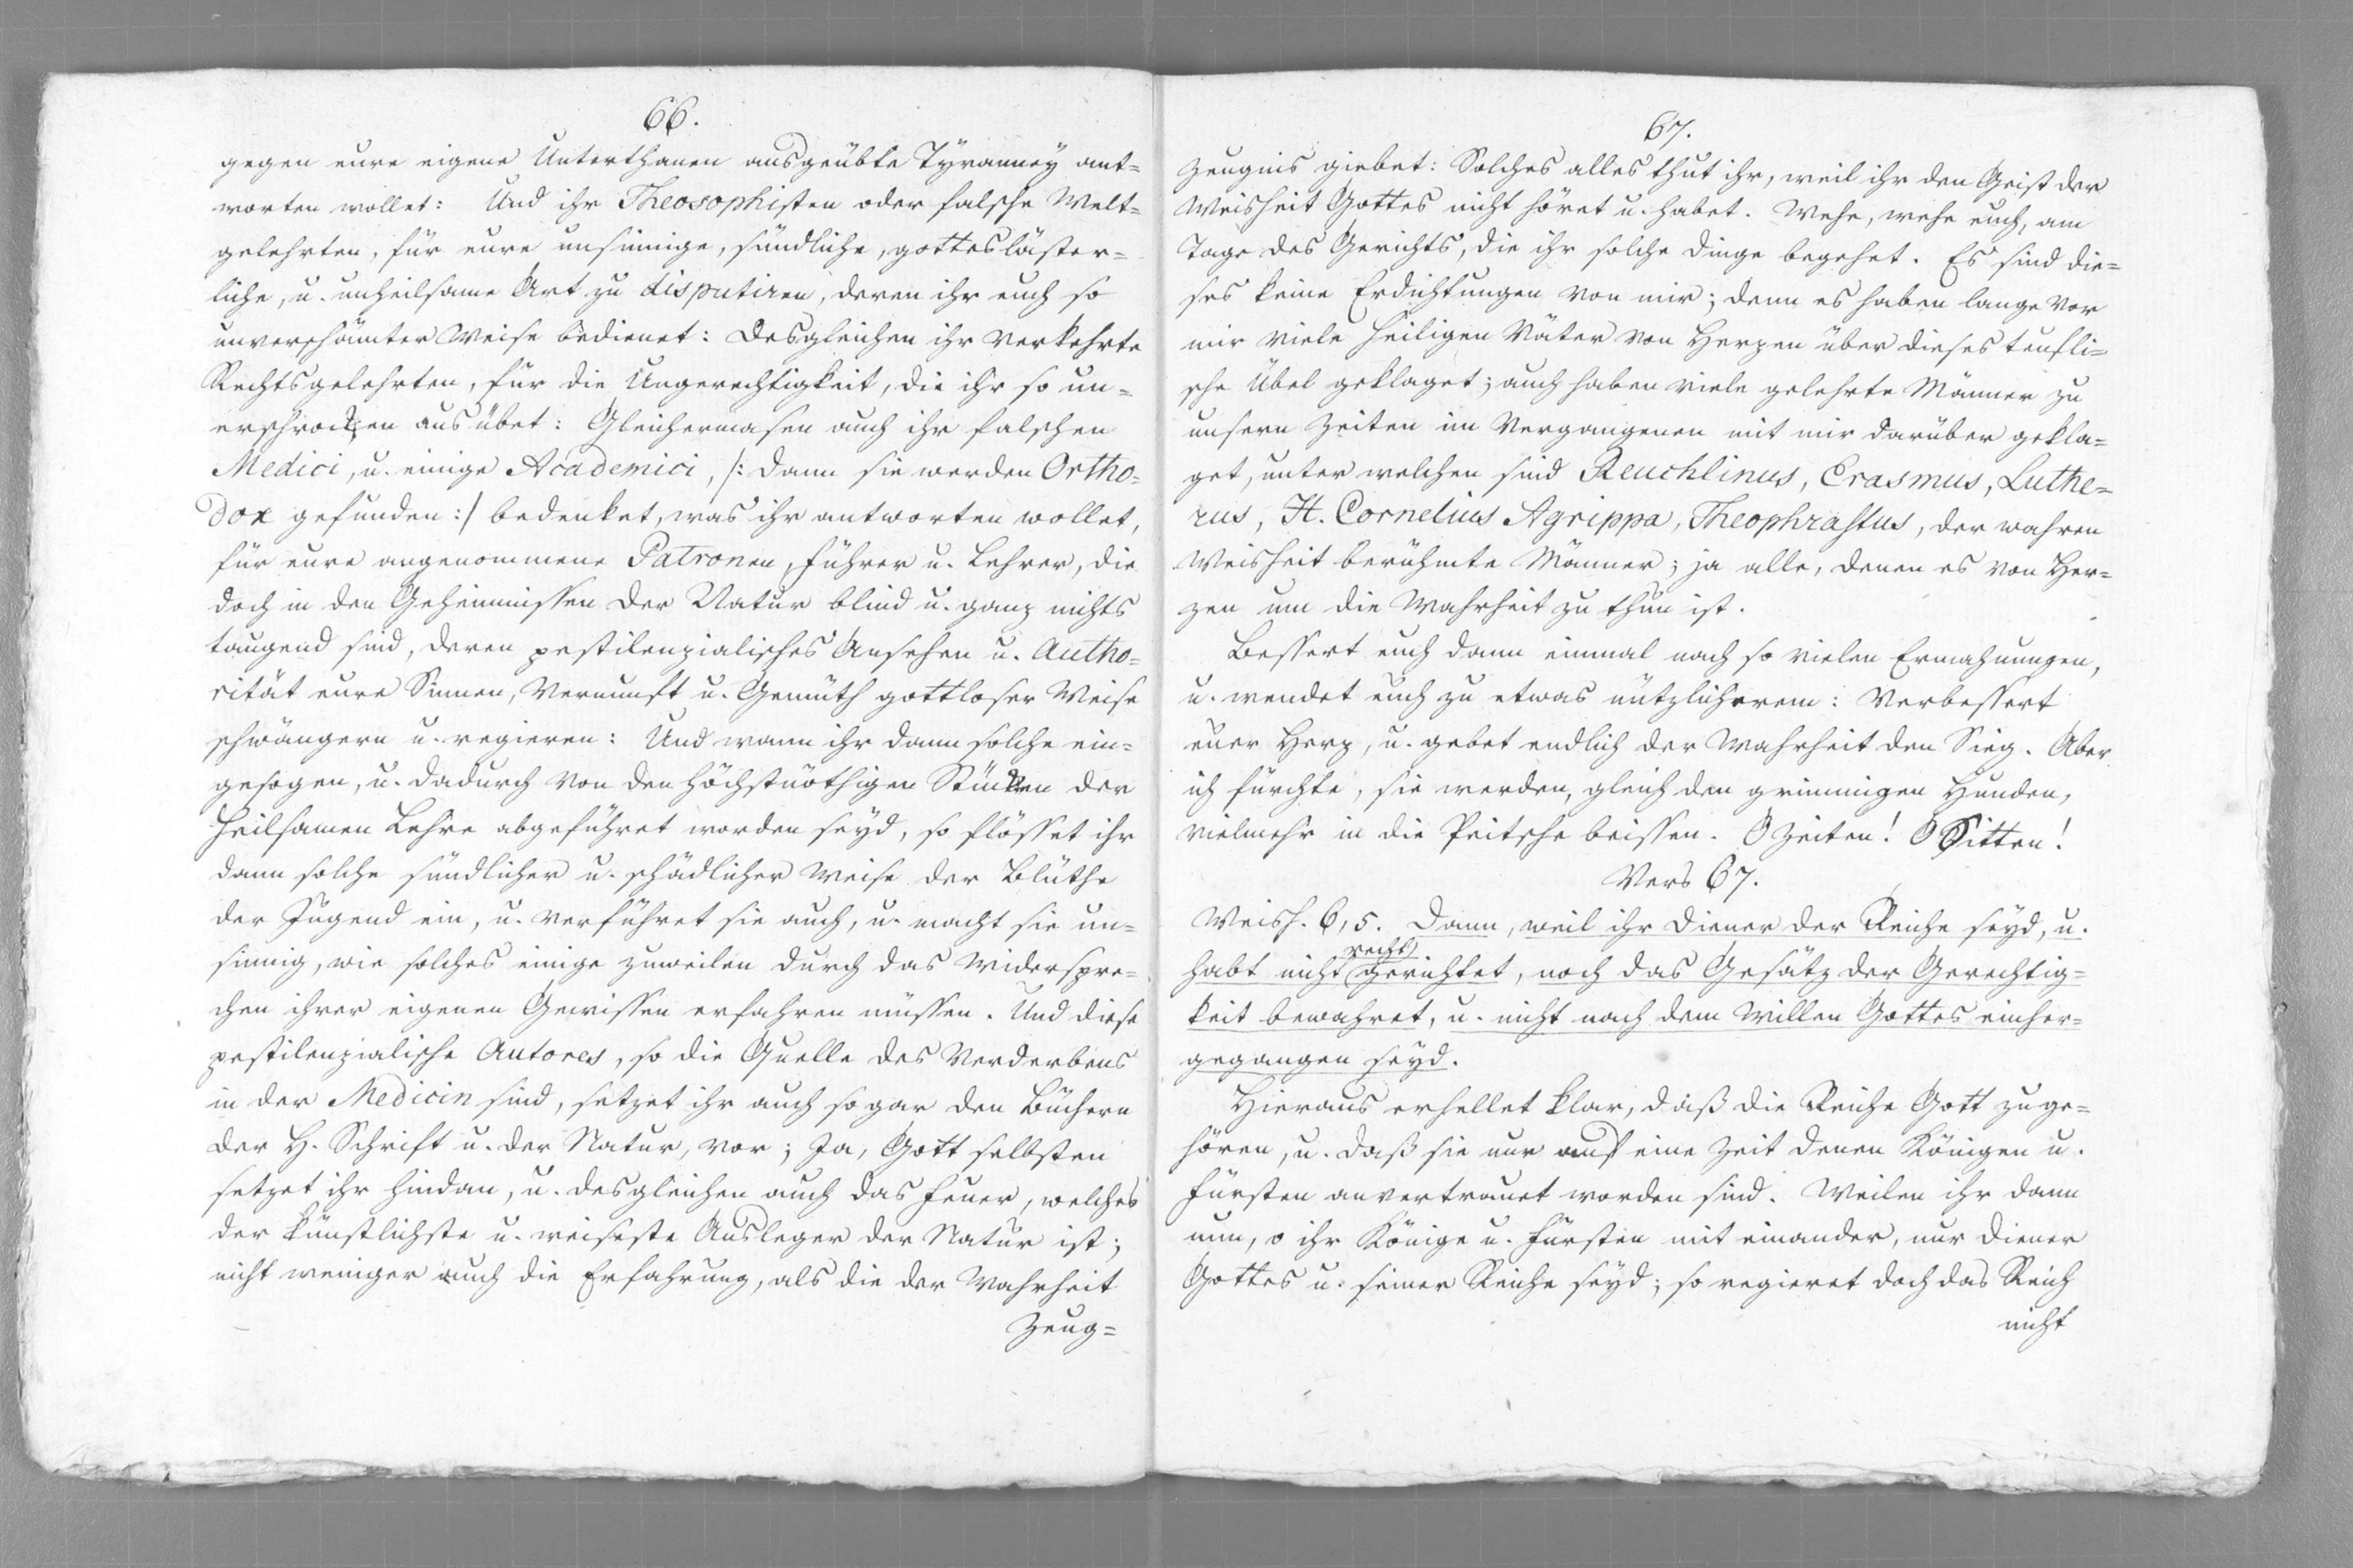 66.
gegen eure eigene Unterthanen ausgeübte Tÿranneÿ ant=
worten wollet: Und ihr Theosophisten oder falsche Welt=
gelehrten, für eure unsinnige, sündliche, gottesläster=
liche, u. unheilsame Art zu disputiren, deren ihr euch so
unverschämter Weise bedienet: Desgleichen ihr verkehrte
Rechtsgelehrten, für die Ungerechtigkeit, die ihr so un=
erschrocken ausübet: Gleichermasen auch ihr falschen
Medici, u. einige Academici, /: dann sie werden Ortho=
dox gefunden :/ bedenket, was ihr antworten wollet,
für eure angenommene Patronen, Führer u. Lehrer, die
doch in den Geheimnissen der Natur blind u. ganz nichts
taugend sind, deren pestilenzialisches Ansehen u. Autho=
rität eure Sinnen, Vernunft u. Gemüth gottloser Weise
schwängern u. regieren: Und wann ihr dann solche ein=
gesogen, u. dadurch von den höchstnöthigen Stücken der
heilsamen Lehre abgeführet worden seÿd, so flösset ihr
dann solche sündlicher u. schädlicher Weise der Blüthe
der Jugend ein, u. verführet sie auch, u. macht sie un=
sinnig, wie solches einige zuweilen durch das Widerspre=
chen ihrer eigenen Gewissen erfahren müssen. Und diese
pestilenzialische Autores, so die Quelle des Verderbens
in der Medicin sind, setzet ihr auch sogar den Büchern
der H. Schrift u. der Natur, vor; Ja, Gott selbsten
setzet ihr hindan, u. desgleichen auch das Feuer, welches
der künstlichste u. weiseste Ausleger der Natur ist;
nicht weniger auch die Erfahrung, als die der Wahrheit
Zeug=
67.
Zeugnis giebet: Solches alles thut ihr, weil ihr den Geist der
Weisheit Gottes nicht höret u. habet. Wehe, wehe euch, am
Tage des Gerichts, die ihr solche Dinge begehet. Es sind die=
ses keine Erdichtungen von mir; denn es haben lange vor
mir viele heiligen Väter von Herzen über dieses teufli=
sche Übel geklaget; auch haben viele gelehrte Männer zu
unsern Zeiten im Vergangenen mit mir darüber gekla=
get, unter welchen sind Reuchlinus, Erasmus, Luthe=
rus, H. Cornelius Agrippa, Theophrastus, der wahren
Weisheit berühmte Männer; ja alle, denen es von Her=
zen um die Wahrheit zu thun ist.
Bessert euch dann einmal nach so vielen Ermahnungen,
u. wendet euch zu etwas nützlicherem: Verbessert
euer Herz, u. gebet endlich der Wahrheit den Sieg. Aber
ich fürchte, sie werden, gleich den grimmigen Hunden,
vielmehr in die Peitsche beissen. O Zeiten! O Sitten!
Vers 67.
Weish. 6, 5. Dann, weil ihr Diener der Reiche seÿd, u.
habt nicht recht gerichtet, noch das Gesätz der Gerechtig=
keit bewahret, u. nicht nach dem Willen Gottes einher=
gegangen seÿd.
Hieraus erhellet klar, daß die Reiche Gott zuge=
hören, u. daß sie nur auf eine Zeit denen Königen u.
Fürsten anvertrauet worden sind. Weilen ihr dann
nun, o ihr Könige u. Fürsten mit einander, nur Diener
Gottes u. seiner Reiche seÿd; so regieret doch das Reich
nicht